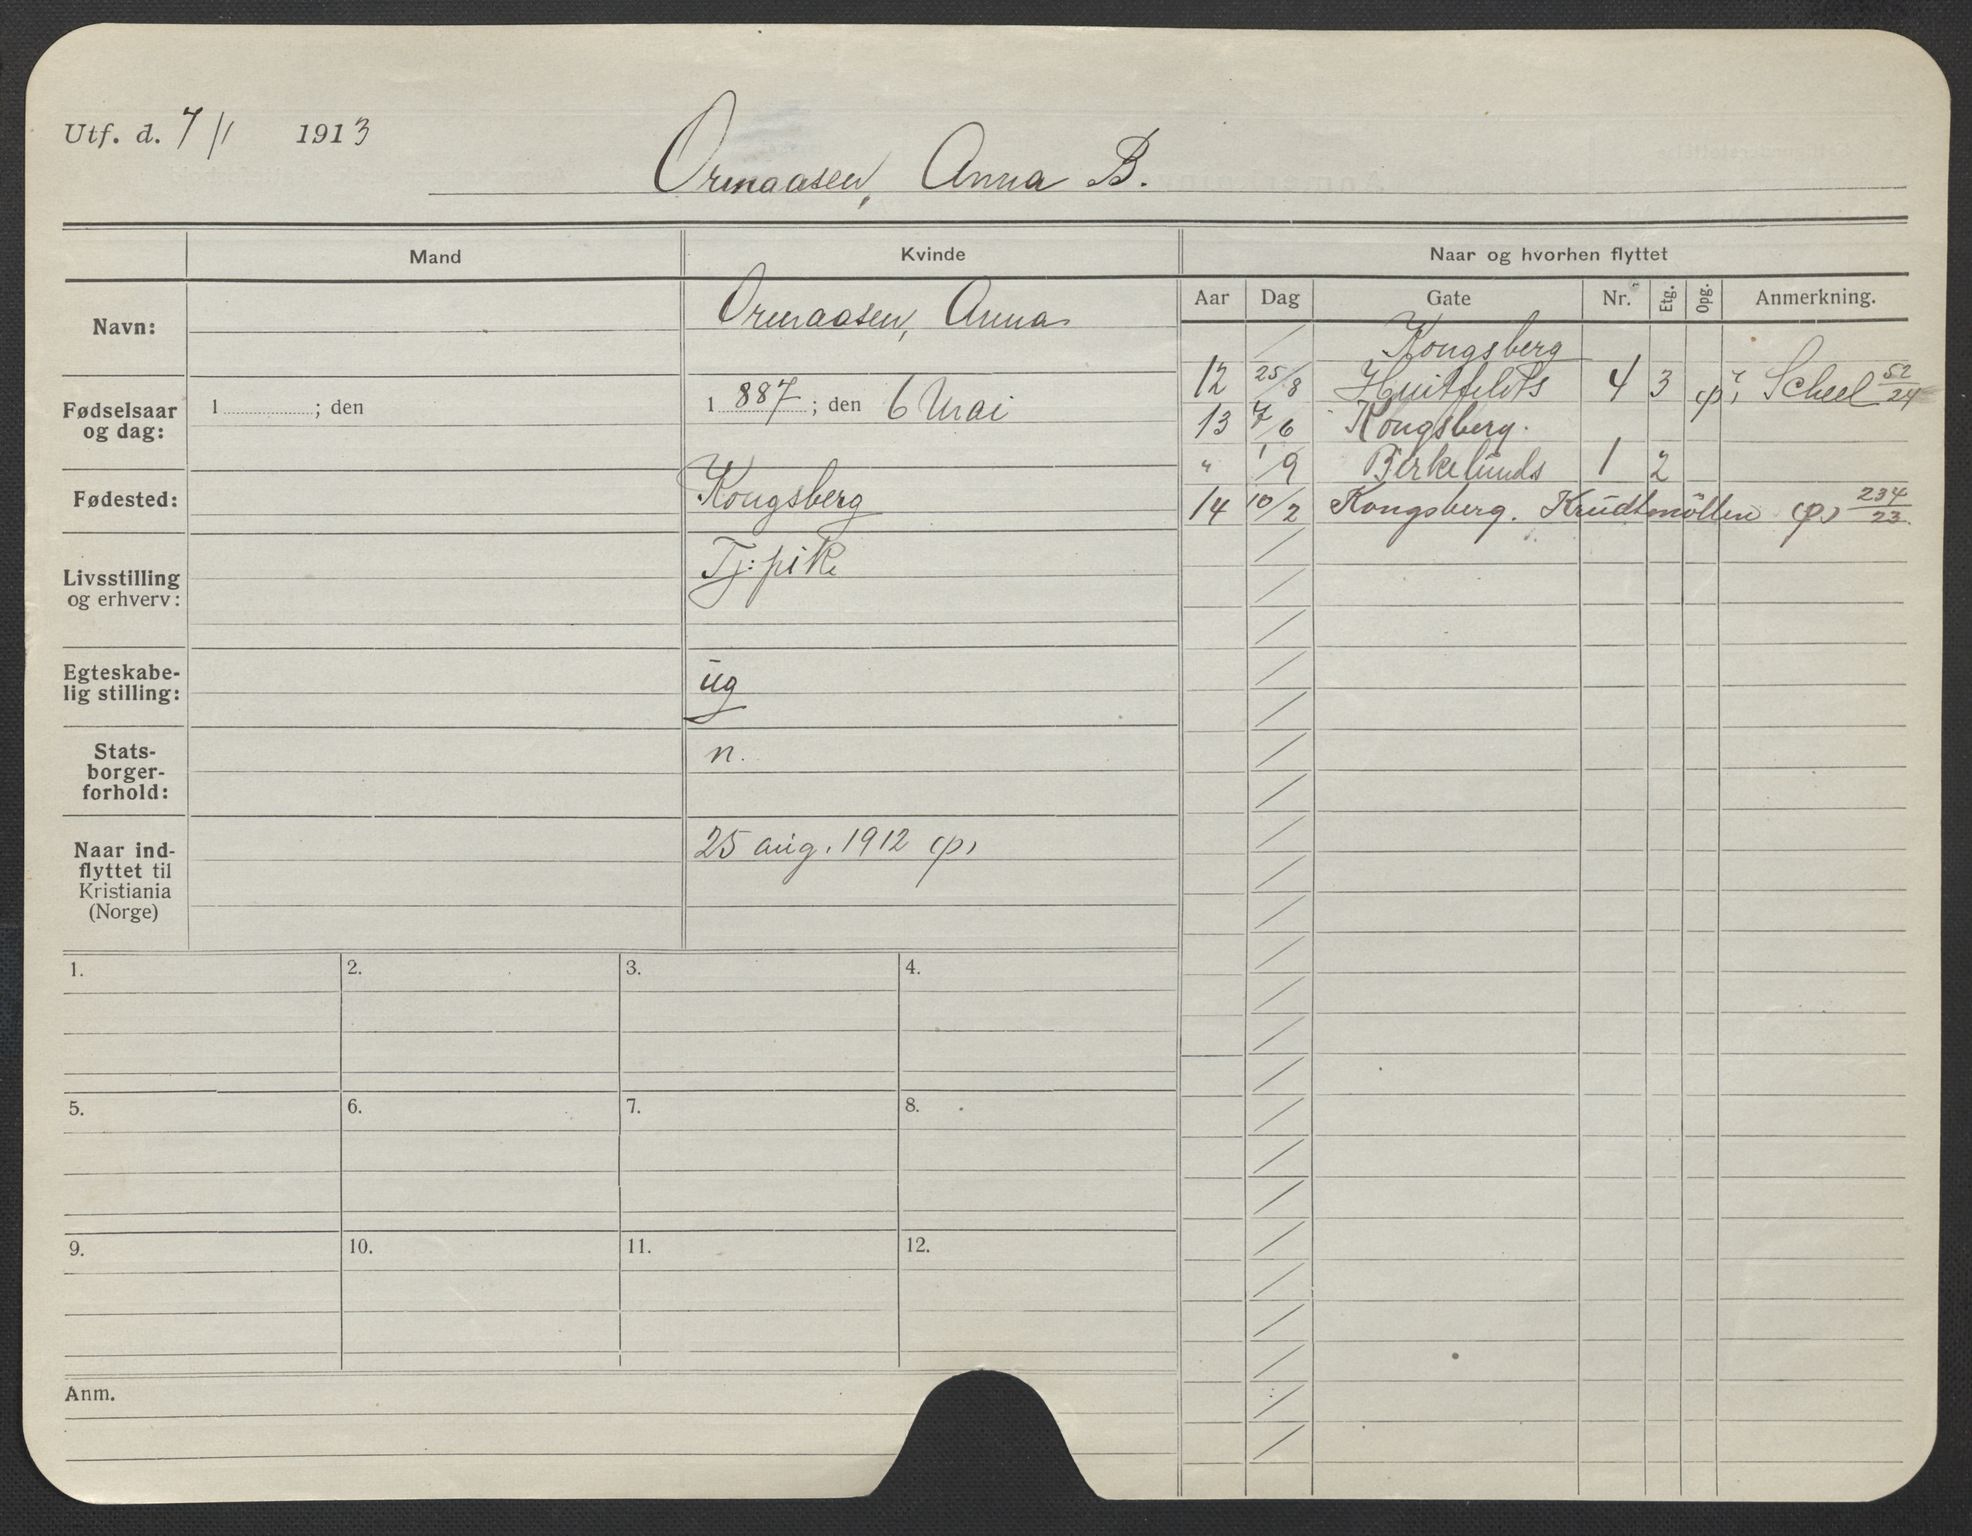 Utf. d. 7/1 1913
Ormaasen, Anna B.
Mand
Kvinde
Naar og hvorhen flyttet
Navn:
Ormaasen, Anna
Fødselsaar og dag:
1 ; den
1887; den 6 Mai
Fødested:
Kongsberg
Livsstilling og erhverv:
Tj: pike
Egteskabe-
lig stilling:
ug
Stats-
borger-
forhold:
n.
Naar ind-
flyttet til
Kristiania
(Norge)
25 aug. 1912 (p)
Aar Dag Gate Nr. Etg. Opg. Anmerkning.
/ Kongsberg
12 25/8 Huitfeldts 4 3 (p) Scheel 52/24
13 7/6 Kongsberg.
" 1/9 Birkelunds 1 2
14 10/2 Kongsberg. Krudtmöllen (p) 234/23.
1. 2. 3. 4.
5. 6. 7. 8.
9. 10. 11. 12.
Anm.